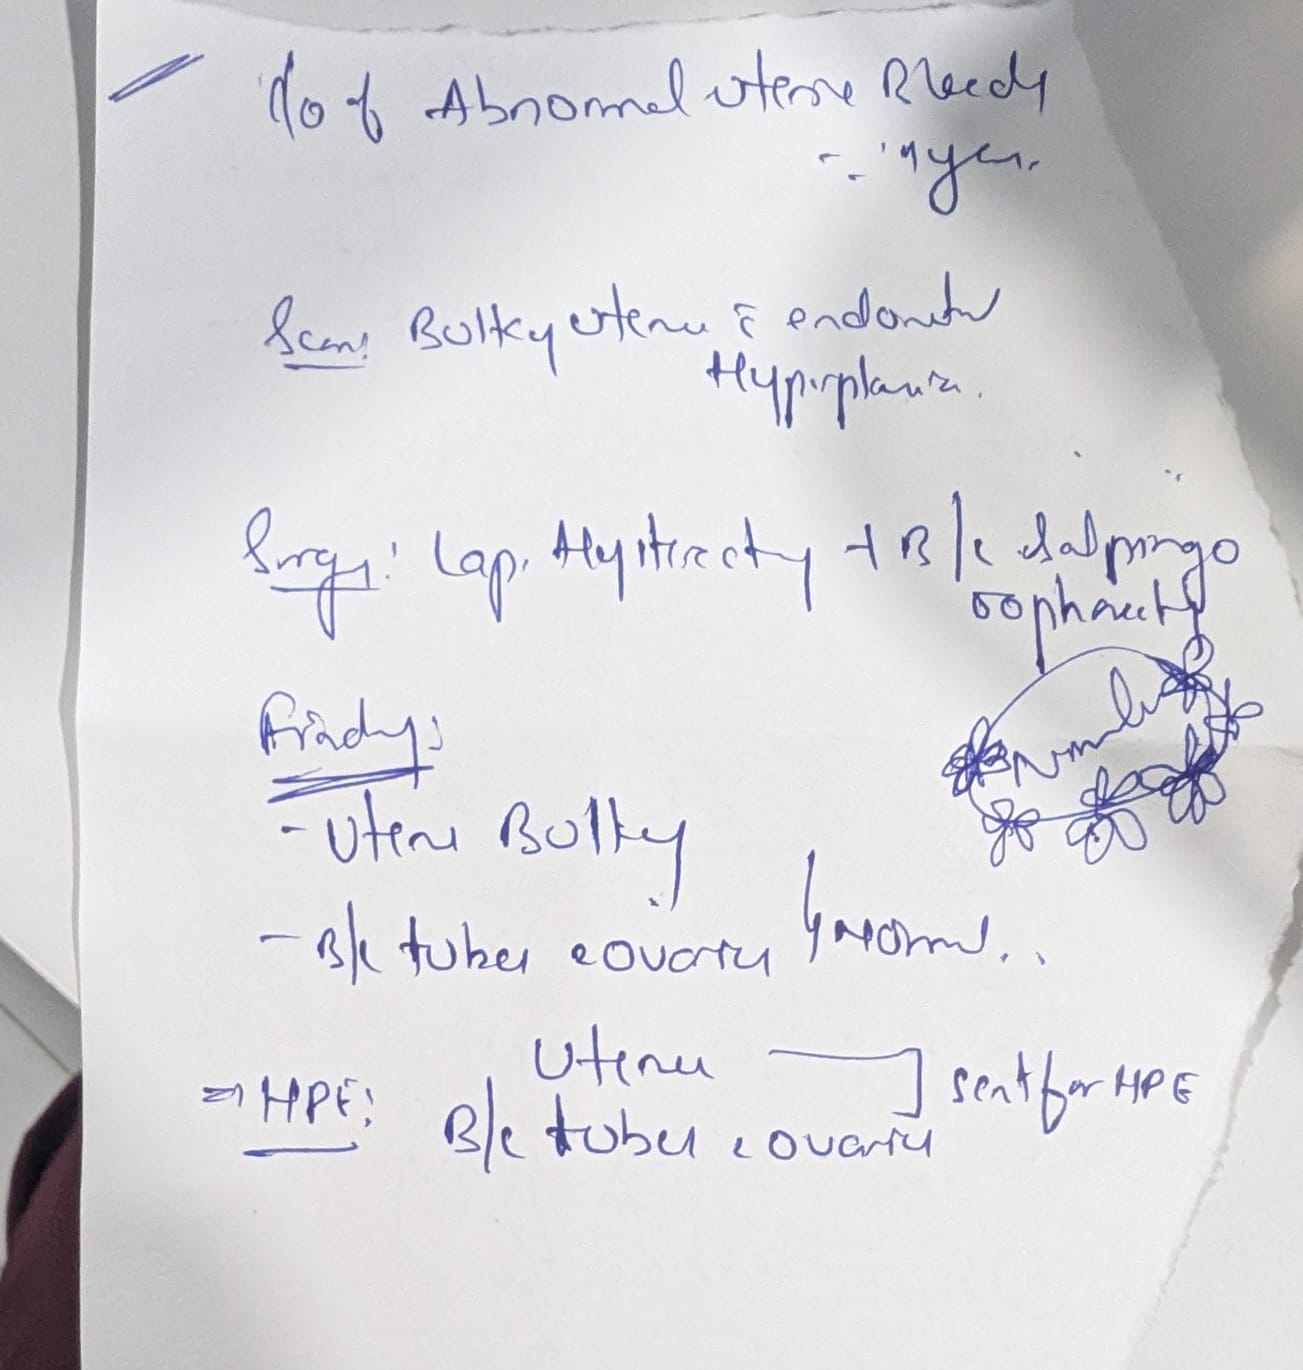 of Abnormal uterine Bleeding
Scan: Bulky uterus c̄ endometrial
Hyperplasia.
Surgery: Lap. Hysterectomy + B/L Salpingo
oophorectomy
Findings:
- Uterus Bulky
- B/L tubes & ovaries normal..
Uterus
⇒ HPE: sent for HPE
B/L tubes & ovaries